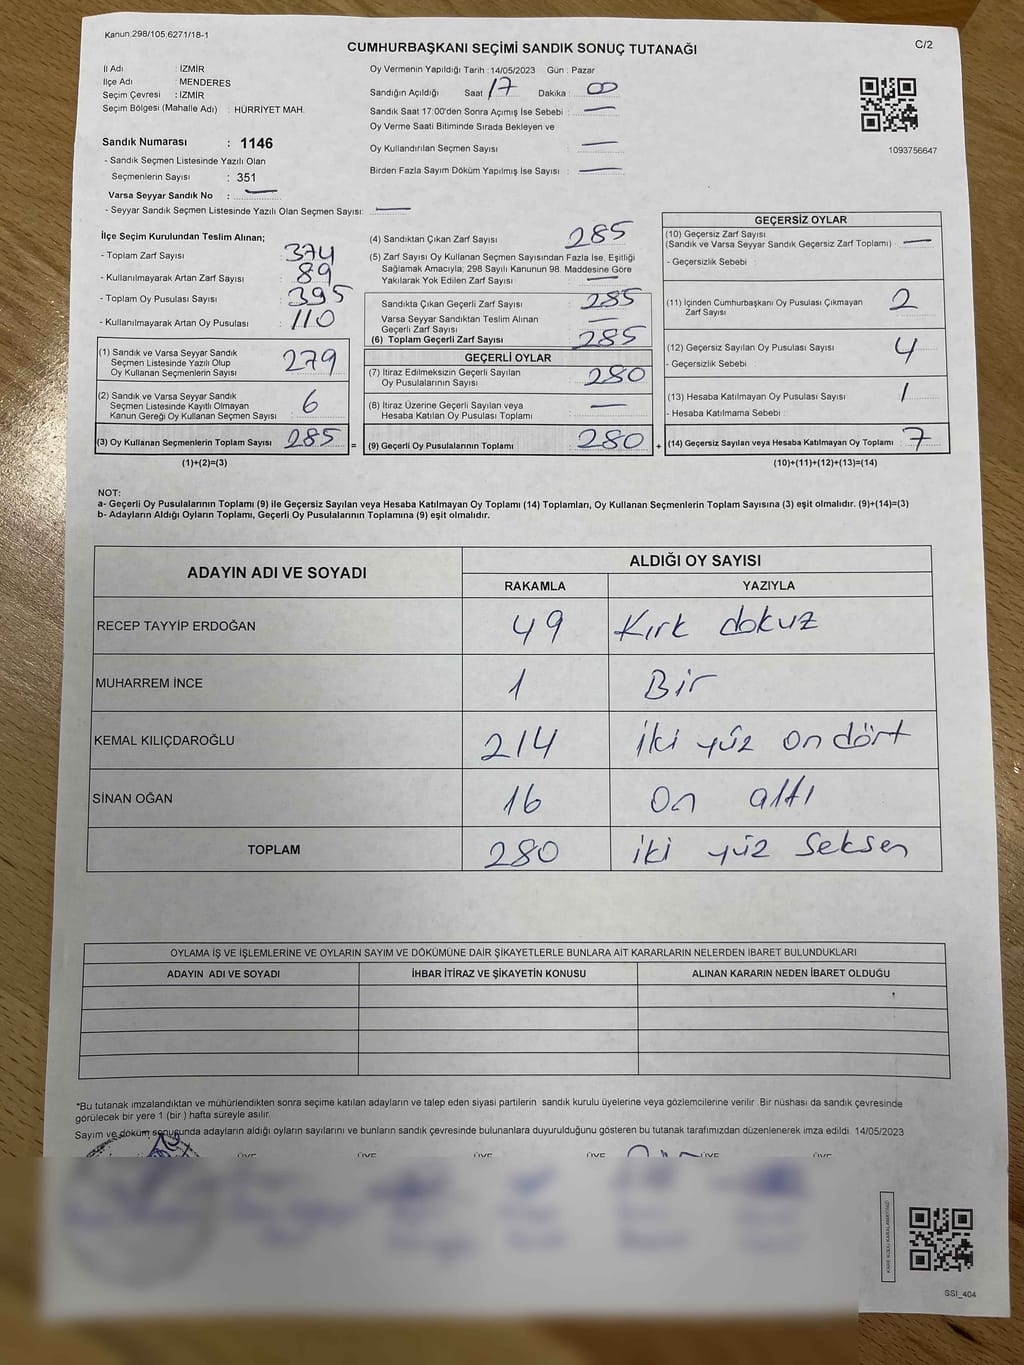 Kanun:298/105.6271/18-1
CUMHURBAŞKANI SEÇİMİ SANDIK SONUÇ TUTANAĞI
C/2
İl Adı : İZMİR
İlçe Adı : MENDERES
Seçim Çevresi : İZMİR
Seçim Bölgesi (Mahalle Adı) : HÜRRİYET MAH.
Oy Vermenin Yapıldığı Tarih :14/05/2023 Gün : Pazar
Sandığın Açıldığı Saat : 17 Dakika : 00
Sandık Saat 17:00'den Sonra Açımış İse Sebebi : —
Oy Verme Saati Bitiminde Sırada Bekleyen ve
Oy Kullandırılan Seçmen Sayısı : —
Birden Fazla Sayım Döküm Yapılmış İse Sayısı : —
1093756647
Sandık Numarası : 1146
- Sandık Seçmen Listesinde Yazılı Olan
Seçmenlerin Sayısı : 351
Varsa Seyyar Sandık No : —
- Seyyar Sandık Seçmen Listesinde Yazılı Olan Seçmen Sayısı: —
İlçe Seçim Kurulundan Teslim Alınan;
- Toplam Zarf Sayısı : 374
- Kullanılmayarak Artan Zarf Sayısı : 89
- Toplam Oy Pusulası Sayısı : 395
- Kullanılmayarak Artan Oy Pusulası : 110
(1) Sandık ve Varsa Seyyar Sandık
Seçmen Listesinde Yazılı Olup
Oy Kullanan Seçmenlerin Sayısı 279
(2) Sandık ve Varsa Seyyar Sandık
Seçmen Listesinde Kayıtlı Olmayan
Kanun Gereği Oy Kullanan Seçmen Sayısı 6
(3) Oy Kullanan Seçmenlerin Toplam Sayısı 285 =
(1)+(2)=(3)
(4) Sandıktan Çıkan Zarf Sayısı : 285
(5) Zarf Sayısı Oy Kullanan Seçmen Sayısından Fazla İse, Eşitliği
Sağlamak Amacıyla; 298 Sayılı Kanunun 98. Maddesine Göre
Yakılarak Yok Edilen Zarf Sayısı : —
Sandıkta Çıkan Geçerli Zarf Sayısı : 285
Varsa Seyyar Sandıktan Teslim Alınan
Geçerli Zarf Sayısı : —
(6) Toplam Geçerli Zarf Sayısı : 285
GEÇERLİ OYLAR
(7) İtiraz Edilmeksizin Geçerli Sayılan
Oy Pusulalarının Sayısı : 280
(8) İtiraz Üzerine Geçerli Sayılan veya
Hesaba Katılan Oy Pusulası Toplamı : —
(9) Geçerli Oy Pusulalarının Toplamı : 280 +
GEÇERSİZ OYLAR
(10) Geçersiz Zarf Sayısı
(Sandık ve Varsa Seyyar Sandık Geçersiz Zarf Toplamı) : —
- Geçersizlik Sebebi :
(11) İçinden Cumhurbaşkanı Oy Pusulası Çıkmayan
Zarf Sayısı : 2
(12) Geçersiz Sayılan Oy Pusulası Sayısı : 4
- Geçersizlik Sebebi :
(13) Hesaba Katılmayan Oy Pusulası Sayısı : 1
- Hesaba Katılmama Sebebi :
(14) Geçersiz Sayılan veya Hesaba Katılmayan Oy Toplamı : 7
(10)+(11)+(12)+(13)=(14)
NOT:
a- Geçerli Oy Pusulalarının Toplamı (9) ile Geçersiz Sayılan veya Hesaba Katılmayan Oy Toplamı (14) Toplamları, Oy Kullanan Seçmenlerin Toplam Sayısına (3) eşit olmalıdır. (9)+(14)=(3)
b- Adayların Aldığı Oyların Toplamı, Geçerli Oy Pusulalarının Toplamına (9) eşit olmalıdır.
ADAYIN ADI VE SOYADI ALDIĞI OY SAYISI
RAKAMLA YAZIYLA
RECEP TAYYİP ERDOĞAN 49 Kırk dokuz
MUHARREM İNCE 1 Bir
KEMAL KILIÇDAROĞLU 214 iki yüz on dört
SİNAN OĞAN 16 on altı
TOPLAM 280 iki yüz Seksen
OYLAMA İŞ VE İŞLEMLERİNE VE OYLARIN SAYIM VE DÖKÜMÜNE DAİR ŞİKAYETLERLE BUNLARA AİT KARARLARIN NELERDEN İBARET BULUNDUKLARI
ADAYIN ADI VE SOYADI İHBAR İTİRAZ VE ŞİKAYETİN KONUSU ALINAN KARARIN NEDEN İBARET OLDUĞU
*Bu tutanak imzalandıktan ve mühürlendikten sonra seçime katılan adayların ve talep eden siyasi partilerin sandık kurulu üyelerine veya gözlemcilerine verilir. Bir nüshası da sandık çevresinde
görülecek bir yere 1 (bir ) hafta süreyle asılır.
Sayım ve döküm sonucunda adayların aldığı oyların sayılarını ve bunların sandık çevresinde bulunanlara duyurulduğunu gösteren bu tutanak tarafımızdan düzenlenerek imza edildi. 14/05/2023
ÜYE ÜYE ÜYE ÜYE ÜYE ÜYE
KARE KODU KARALAMAYINIZ!
SSI_404